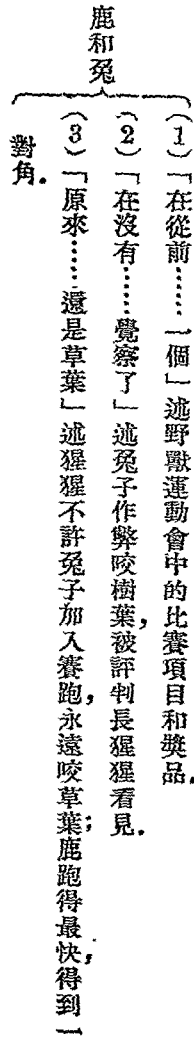 鹿和兔
(1)「在從前……一個」述野獸運動會中的比賽項目和獎品.
(2)「在沒有……覺察了」述兔子作弊咬樹葉,被評判長猩猩看見.
(3)「原來……還是草葉」述猩猩不許兔子加入賽跑,永遠咬草葉;鹿跑得最快,得到一
對角.